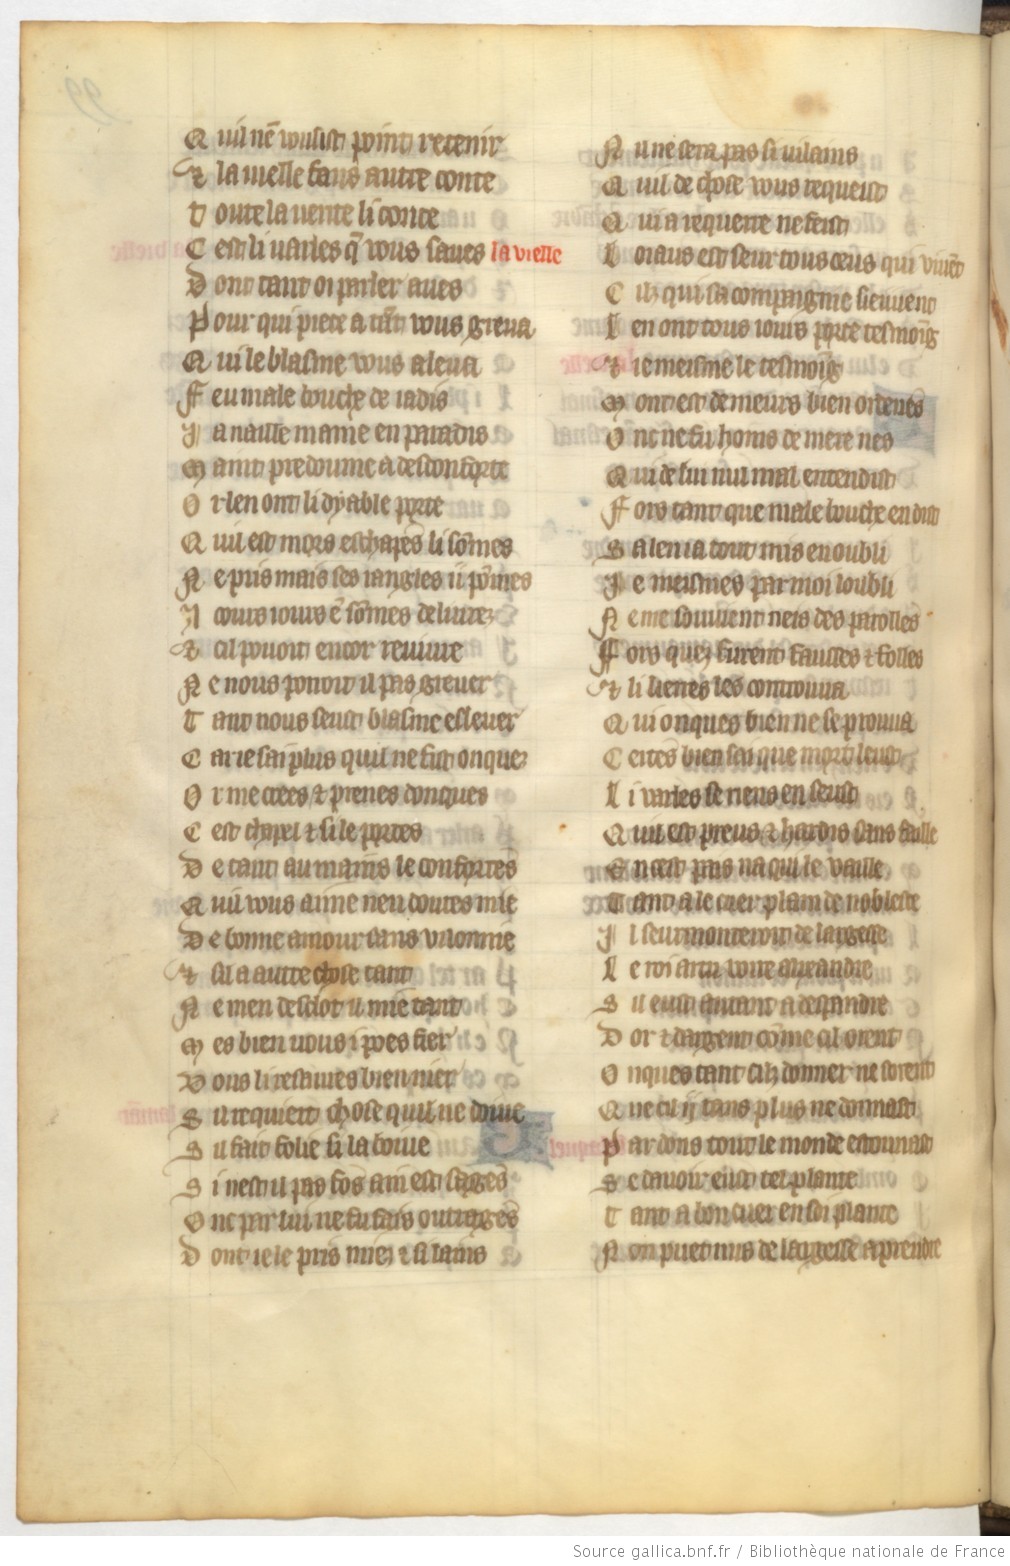 Quil nē vousist point retenir
Et la vielle sans autre conte
Toute la vente li conte
Cest li varles q̄ vous saves la vielle
Dont tant oi parler aves
Pour qui piece a tāt vous greva
Qui le blasme vous aleva
Feu male bouche de iadis
Ja naille mame en paradis
Maint predoume a desconforte
Or len ont li dyable porte
Quil est mors eschapes li sōmes
Ne pris mais ses iangles ii pōmes
A touis iouis ē sōmes deliure
Et cil pouoit encor reuiure
Ne nous poroit il pas greuer
Tant nous seust blasme esleuer
Car ie sai plus quil ne fist onques
Or me crees et prenes donques
Cest chapel et si le portes
De tant au mains le confortes
Quil vous aime nen doutes mie
De bonne amour sans vilonnie
Et sil a autre chose tant
Ne men desclot il mie tant
Mes bien nous i poes fier
Vous li resaures bien nier
Sil requiert chose quil ne doiue
Sil fait folie si la boiue
Si nest il pas fos ains est sages
Onc par lui ne fu fais outrages
Dont ie le pris miex et si lains
Nil ne sera pas si vilains
Quil de chose vous requeist
Qui a requerre ne feist
Loiaus est seur tous ceus qui viuēt
Cilz qui sa compaignie sieuuent
Len ont tous iours porte tesmoīg
Et ie meisme le tesmoīg
Mont est de meurs bien ordenes
Onc ne fu homs de mere nes
Qui de lui nul mal entendist
Fors tant que male bouche en dist
Sa len ia tout mis en oubli
Je meismes par moi loubli
Ne me souuient neis des parolles
Fors quelz furent fausses et folles
Et li lierres les controuua
Qui onques bien ne se prouua
Certes bien sai que mort leust
Li varles se riens en seust
Quil est preus et hardis sans faille
En cest pais na qui le vaille
Tant a le cuer plain de noblece
Il seurmonteroit de largesse
Le roi artu voire alixandre
Sil eust autant a despandre
Dor et dargent cōme cil orent
Onques tant cilz donner ne sorent
Que cil ij tans plus ne donnast
Par dons tout le monde estonnast
Se dauoir eust tel plante
Tant a bon cuer en soi plante
Non puet nus de largesse aprendre
Source gallica.bnf.fr / Bibliothèque nationale de France